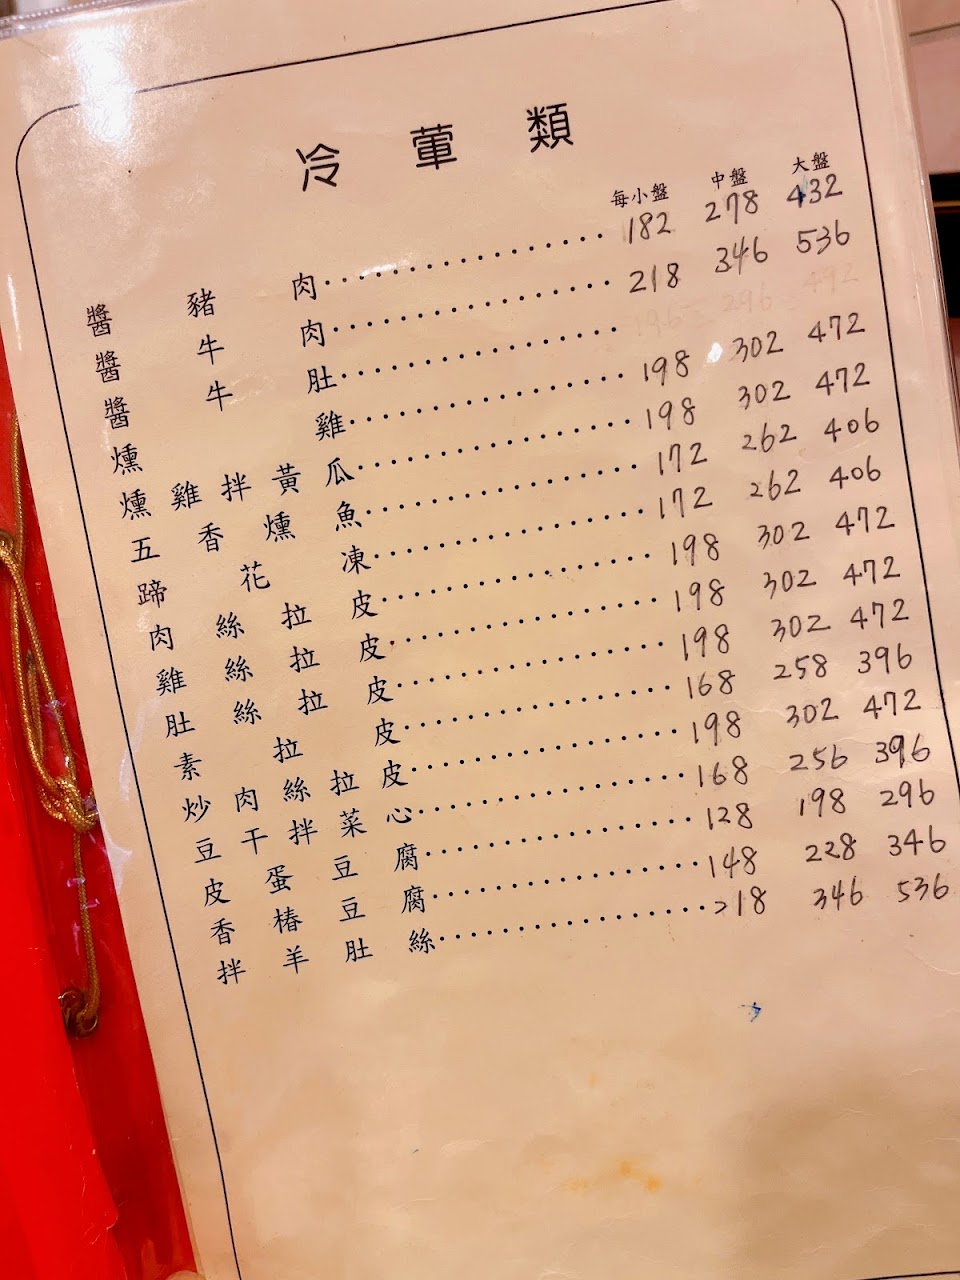 冷葷類
每小盤 中盤 大盤
醬豬肉 182 278 432
醬牛肉 218 346 536
醬牛肚
燻雞 198 302 472
燻雞拌黃瓜 198 302 472
五香燻魚 172 262 406
蹄花凍 172 262 406
肉絲拉皮 198 302 472
雞絲拉皮 198 302 472
肚絲拉皮 198 302 472
素拉皮 168 258 396
炒肉絲拉皮 198 302 472
豆干拌菜心 168 256 396
皮蛋豆腐 128 198 296
香椿豆腐 148 228 346
拌羊肚絲 218 346 536